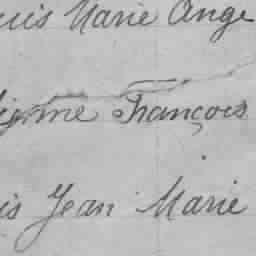 uis Marie Ange
François
is Jean Marie